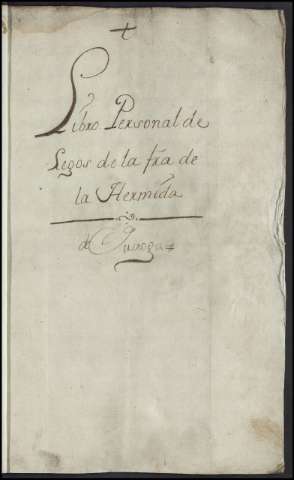 Libro Personal de
Legos de la fra de
la Hermida
de Quiroga=